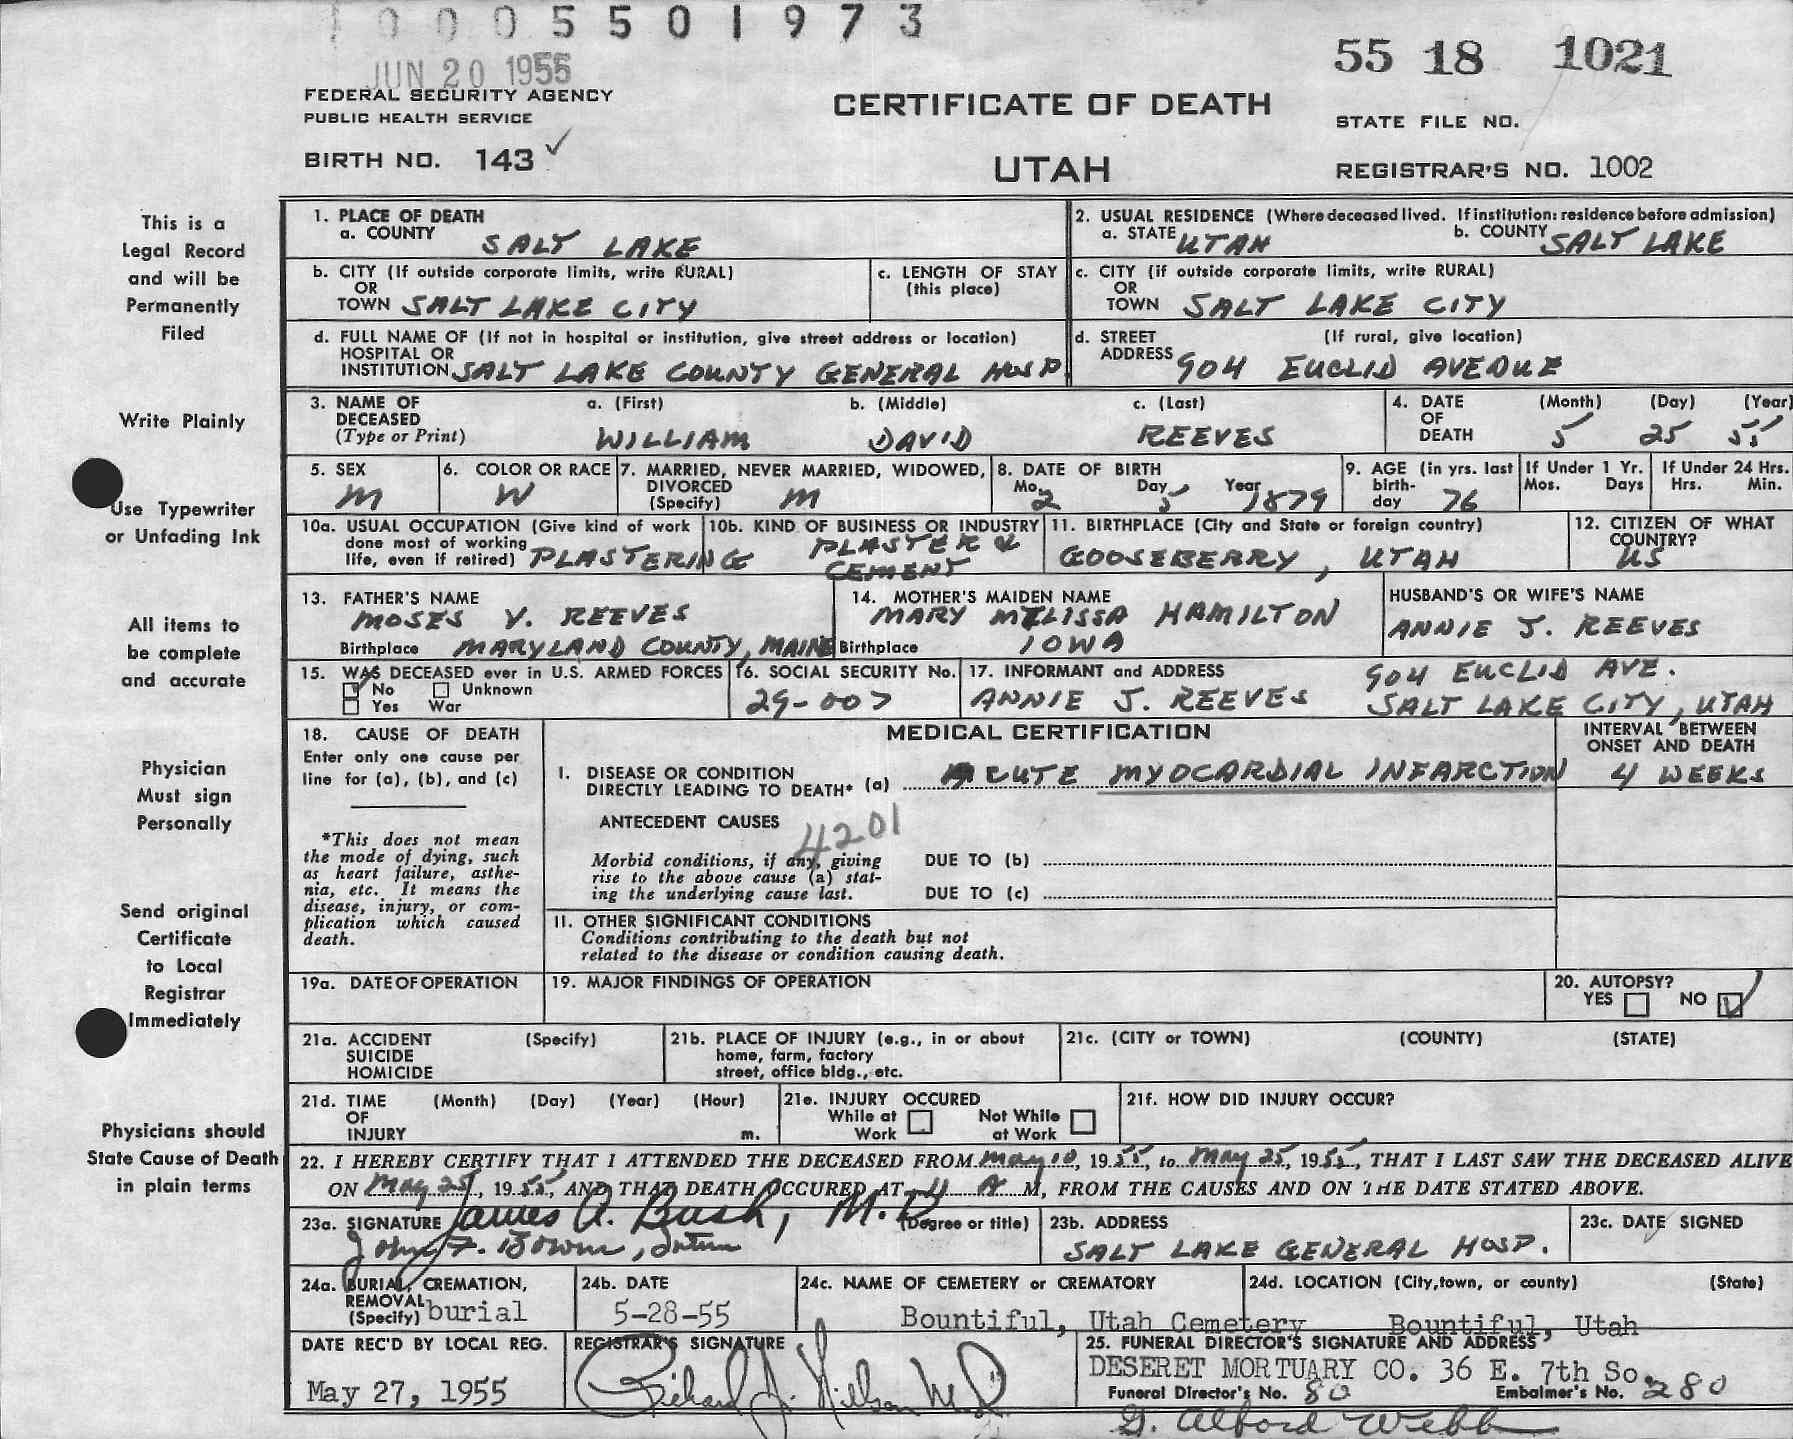 0005501973
JUN 20 1955
55 18 1021
FEDERAL SECURITY AGENCY
PUBLIC HEALTH SERVICE
CERTIFICATE OF DEATH
STATE FILE NO.
BIRTH NO. 143 ✓
UTAH
REGISTRAR'S NO. 1002
This is a
Legal Record
and will be
Permanently
Filed
Write Plainly
Use Typewriter
or Unfading Ink
All items to
be complete
and accurate
Physician
Must sign
Personally
Send original
Certificate
to Local
Registrar
Immediately
Physicians should
State Cause of Death
in plain terms
1. PLACE OF DEATH
a. COUNTY SALT LAKE
2. USUAL RESIDENCE (Where deceased lived. If institution: residence before admission)
a. STATE UTAH b. COUNTY SALT LAKE
b. CITY (If outside corporate limits, write RURAL)
OR
TOWN SALT LAKE CITY
c. LENGTH OF STAY
(this place)
c. CITY (if outside corporate limits, write RURAL)
OR
TOWN SALT LAKE CITY
d. FULL NAME OF (If not in hospital or institution, give street address or location)
HOSPITAL OR
INSTITUTION SALT LAKE COUNTY GENERAL HOSP
d. STREET (If rural, give location)
ADDRESS 904 EUCLID AVEDUE
3. NAME OF a. (First) b. (Middle) c. (Last)
DECEASED
(Type or Print) WILLIAM DAVID REEVES
4. DATE (Month) (Day) (Year)
OF
DEATH 5 25 55
5. SEX
M
6. COLOR OR RACE
W
7. MARRIED, NEVER MARRIED, WIDOWED,
DIVORCED
(Specify) M
8. DATE OF BIRTH
Mo. 2 Day 5 Year 1879
9. AGE (in yrs. last
birth-
day 76
If Under 1 Yr.
Mos. Days
If Under 24 Hrs.
Hrs. Min.
10a. USUAL OCCUPATION (Give kind of work
done most of working
life, even if retired) PLASTERING
10b. KIND OF BUSINESS OR INDUSTRY
PLASTER &
CEMENT
11. BIRTHPLACE (City and State or foreign country)
GOOSEBERRY, UTAH
12. CITIZEN OF WHAT
COUNTRY?
US
13. FATHER'S NAME
MOSES V. REEVES
Birthplace MARYLAND COUNTY, MAINE
14. MOTHER'S MAIDEN NAME
MARY MELISSA HAMILTON
Birthplace IOWA
HUSBAND'S OR WIFE'S NAME
ANNIE J. REEVES
15. WAS DECEASED ever in U.S. ARMED FORCES
No Unknown
Yes War
16. SOCIAL SECURITY No.
29-007
17. INFORMANT and ADDRESS
ANNIE J. REEVES
904 EUCLID AVE.
SALT LAKE CITY, UTAH
18. CAUSE OF DEATH
Enter only one cause per
line for (a), (b), and (c)
*This does not mean
the mode of dying, such
as heart failure, asthe-
nia, etc. It means the
disease, injury, or com-
plication which caused
death.
MEDICAL CERTIFICATION
INTERVAL BETWEEN
ONSET AND DEATH
I. DISEASE OR CONDITION
DIRECTLY LEADING TO DEATH* (a) ACUTE MYOCARDIAL INFARCTION 4 WEEKS
ANTECEDENT CAUSES
4201
Morbid conditions, if any, giving
rise to the above cause (a) stat-
ing the underlying cause last.
DUE TO (b)
DUE TO (c)
II. OTHER SIGNIFICANT CONDITIONS
Conditions contributing to the death but not
related to the disease or condition causing death.
19a. DATE OF OPERATION
19. MAJOR FINDINGS OF OPERATION
20. AUTOPSY?
YES NO ✓
21a. ACCIDENT (Specify)
SUICIDE
HOMICIDE
21b. PLACE OF INJURY (e.g., in or about
home, farm, factory
street, office bldg., etc.
21c. (CITY or TOWN) (COUNTY) (STATE)
21d. TIME (Month) (Day) (Year) (Hour)
OF
INJURY m.
21e. INJURY OCCURED
While at Not While
Work at Work
21f. HOW DID INJURY OCCUR?
22. I HEREBY CERTIFY THAT I ATTENDED THE DECEASED FROM May 10, 1955, to May 25, 1955, THAT I LAST SAW THE DECEASED ALIVE
ON May 25, 1955, AND THAT DEATH OCCURED AT 4 A M, FROM THE CAUSES AND ON THE DATE STATED ABOVE.
23a. SIGNATURE James A. Bush, M.D. (Degree or title)
John F. Bown, Intern
23b. ADDRESS
SALT LAKE GENERAL HOSP.
23c. DATE SIGNED
24a. BURIAL, CREMATION,
REMOVAL
(Specify) burial
24b. DATE
5-28-55
24c. NAME OF CEMETERY or CREMATORY
Bountiful, Utah Cemetery
24d. LOCATION (City, town, or county) (State)
Bountiful, Utah
DATE REC'D BY LOCAL REG.
May 27, 1955
REGISTRAR'S SIGNATURE
Richard J. Nelson M.D.
25. FUNERAL DIRECTOR'S SIGNATURE AND ADDRESS
DESERET MORTUARY CO. 36 E. 7th So.
Funeral Director's No. 80 Embalmer's No. 280
G. Alford Webb